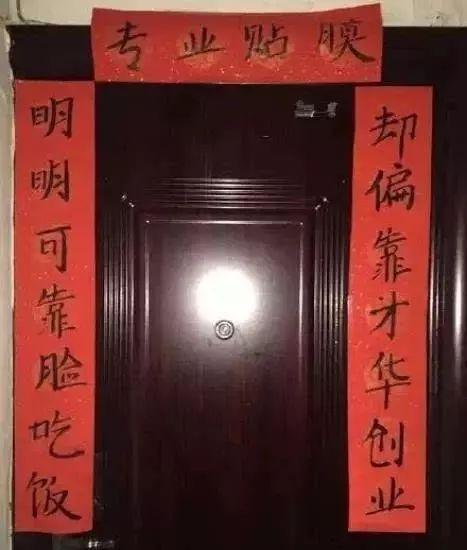 专业贴膜
明明可靠脸吃饭
却偏靠才华创业